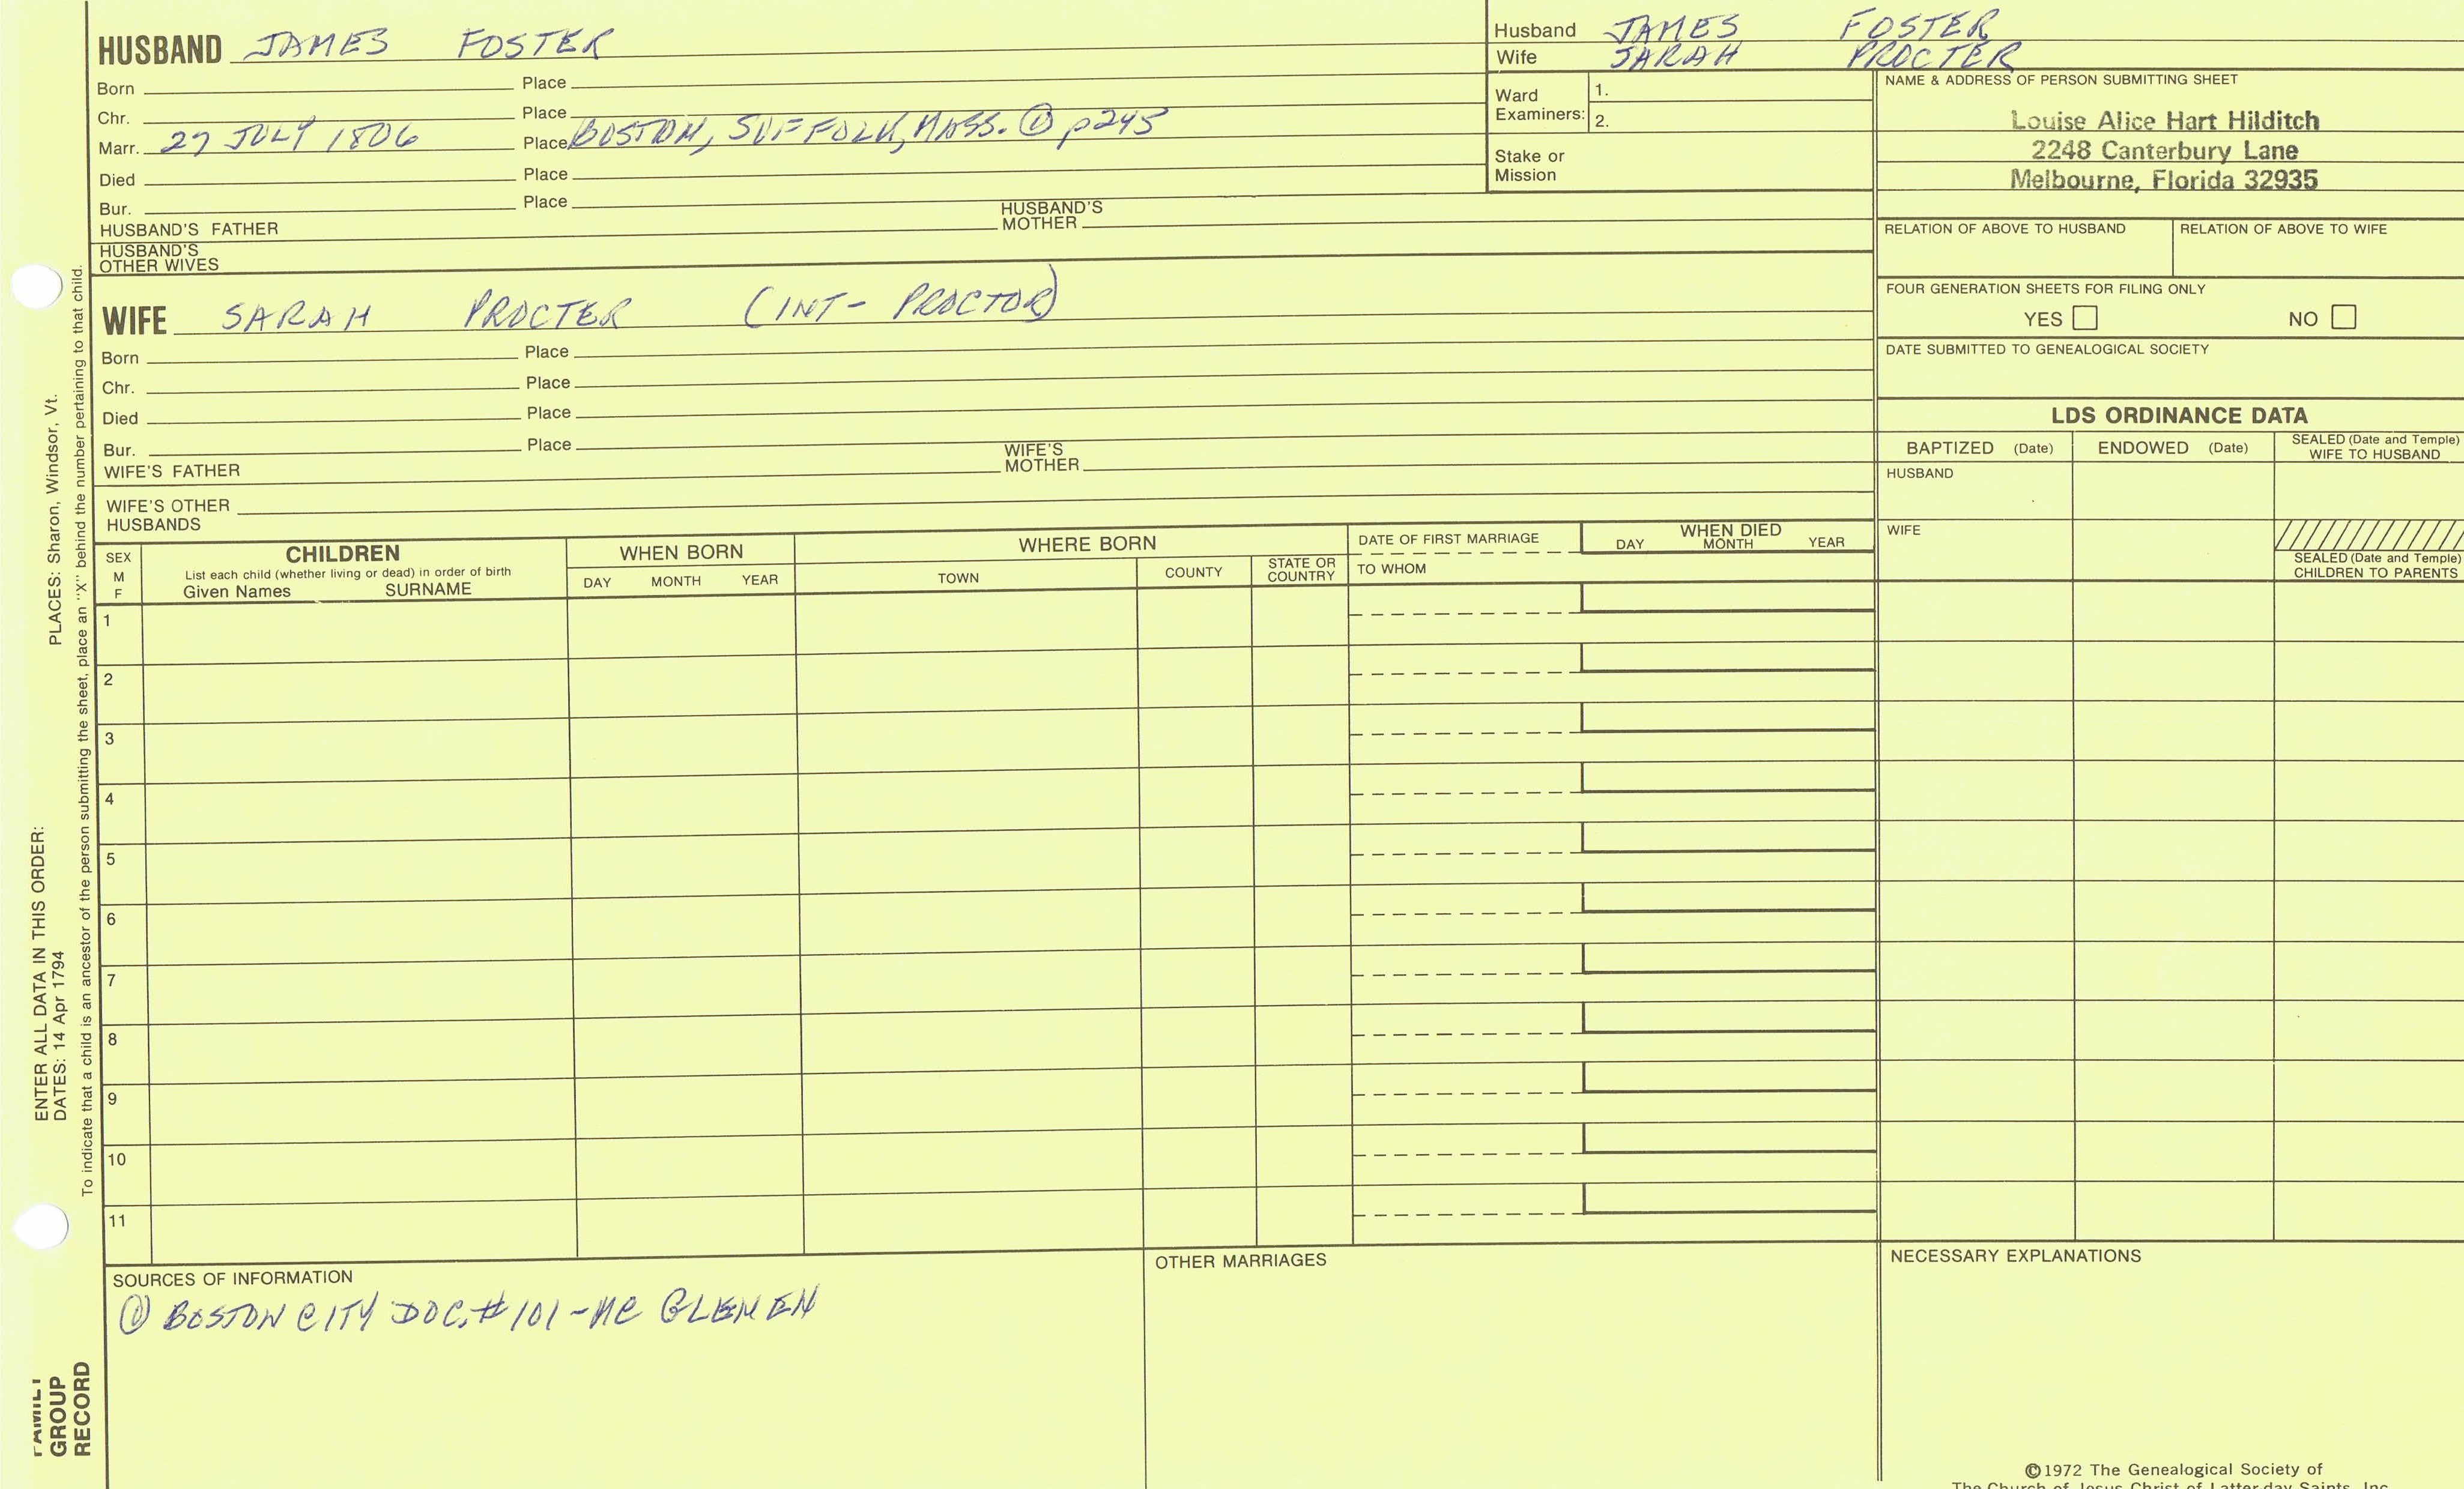 HUSBAND JAMES FOSTER
Born Place
Chr. Place
Marr. 27 JULY 1806 Place BOSTON, SUFFOLK, MASS. ① p245
Died Place
Bur. Place
HUSBAND'S FATHER HUSBAND'S MOTHER
HUSBAND'S OTHER WIVES
WIFE SARAH PROCTER (INT- PROCTOR)
Born Place
Chr. Place
Died Place
Bur. Place
WIFE'S FATHER WIFE'S MOTHER
WIFE'S OTHER HUSBANDS
Husband JAMES FOSTER
Wife SARAH PROCTER
Ward Examiners: 1.
2.
Stake or Mission
NAME & ADDRESS OF PERSON SUBMITTING SHEET
Louise Alice Hart Hilditch
2248 Canterbury Lane
Melbourne, Florida 32935
RELATION OF ABOVE TO HUSBAND RELATION OF ABOVE TO WIFE
FOUR GENERATION SHEETS FOR FILING ONLY
YES NO
DATE SUBMITTED TO GENEALOGICAL SOCIETY
LDS ORDINANCE DATA
BAPTIZED (Date) ENDOWED (Date) SEALED (Date and Temple) WIFE TO HUSBAND
HUSBAND
WIFE
SEALED (Date and Temple)
CHILDREN TO PARENTS
SEX
M
F
CHILDREN
List each child (whether living or dead) in order of birth
Given Names SURNAME
WHEN BORN
DAY MONTH YEAR
WHERE BORN
TOWN COUNTY STATE OR COUNTRY
DATE OF FIRST MARRIAGE
TO WHOM
WHEN DIED
DAY MONTH YEAR
1
2
3
4
5
6
7
8
9
10
11
SOURCES OF INFORMATION
① BOSTON CITY DOC. #101 - MC GLENEN
OTHER MARRIAGES
NECESSARY EXPLANATIONS
©1972 The Genealogical Society of
The Church of Jesus Christ of Latter-day Saints, Inc.
ENTER ALL DATA IN THIS ORDER:
DATES: 14 Apr 1794 PLACES: Sharon, Windsor, Vt.
To indicate that a child is an ancestor of the person submitting the sheet, place an "X" behind the number pertaining to that child.
FAMILY
GROUP
RECORD